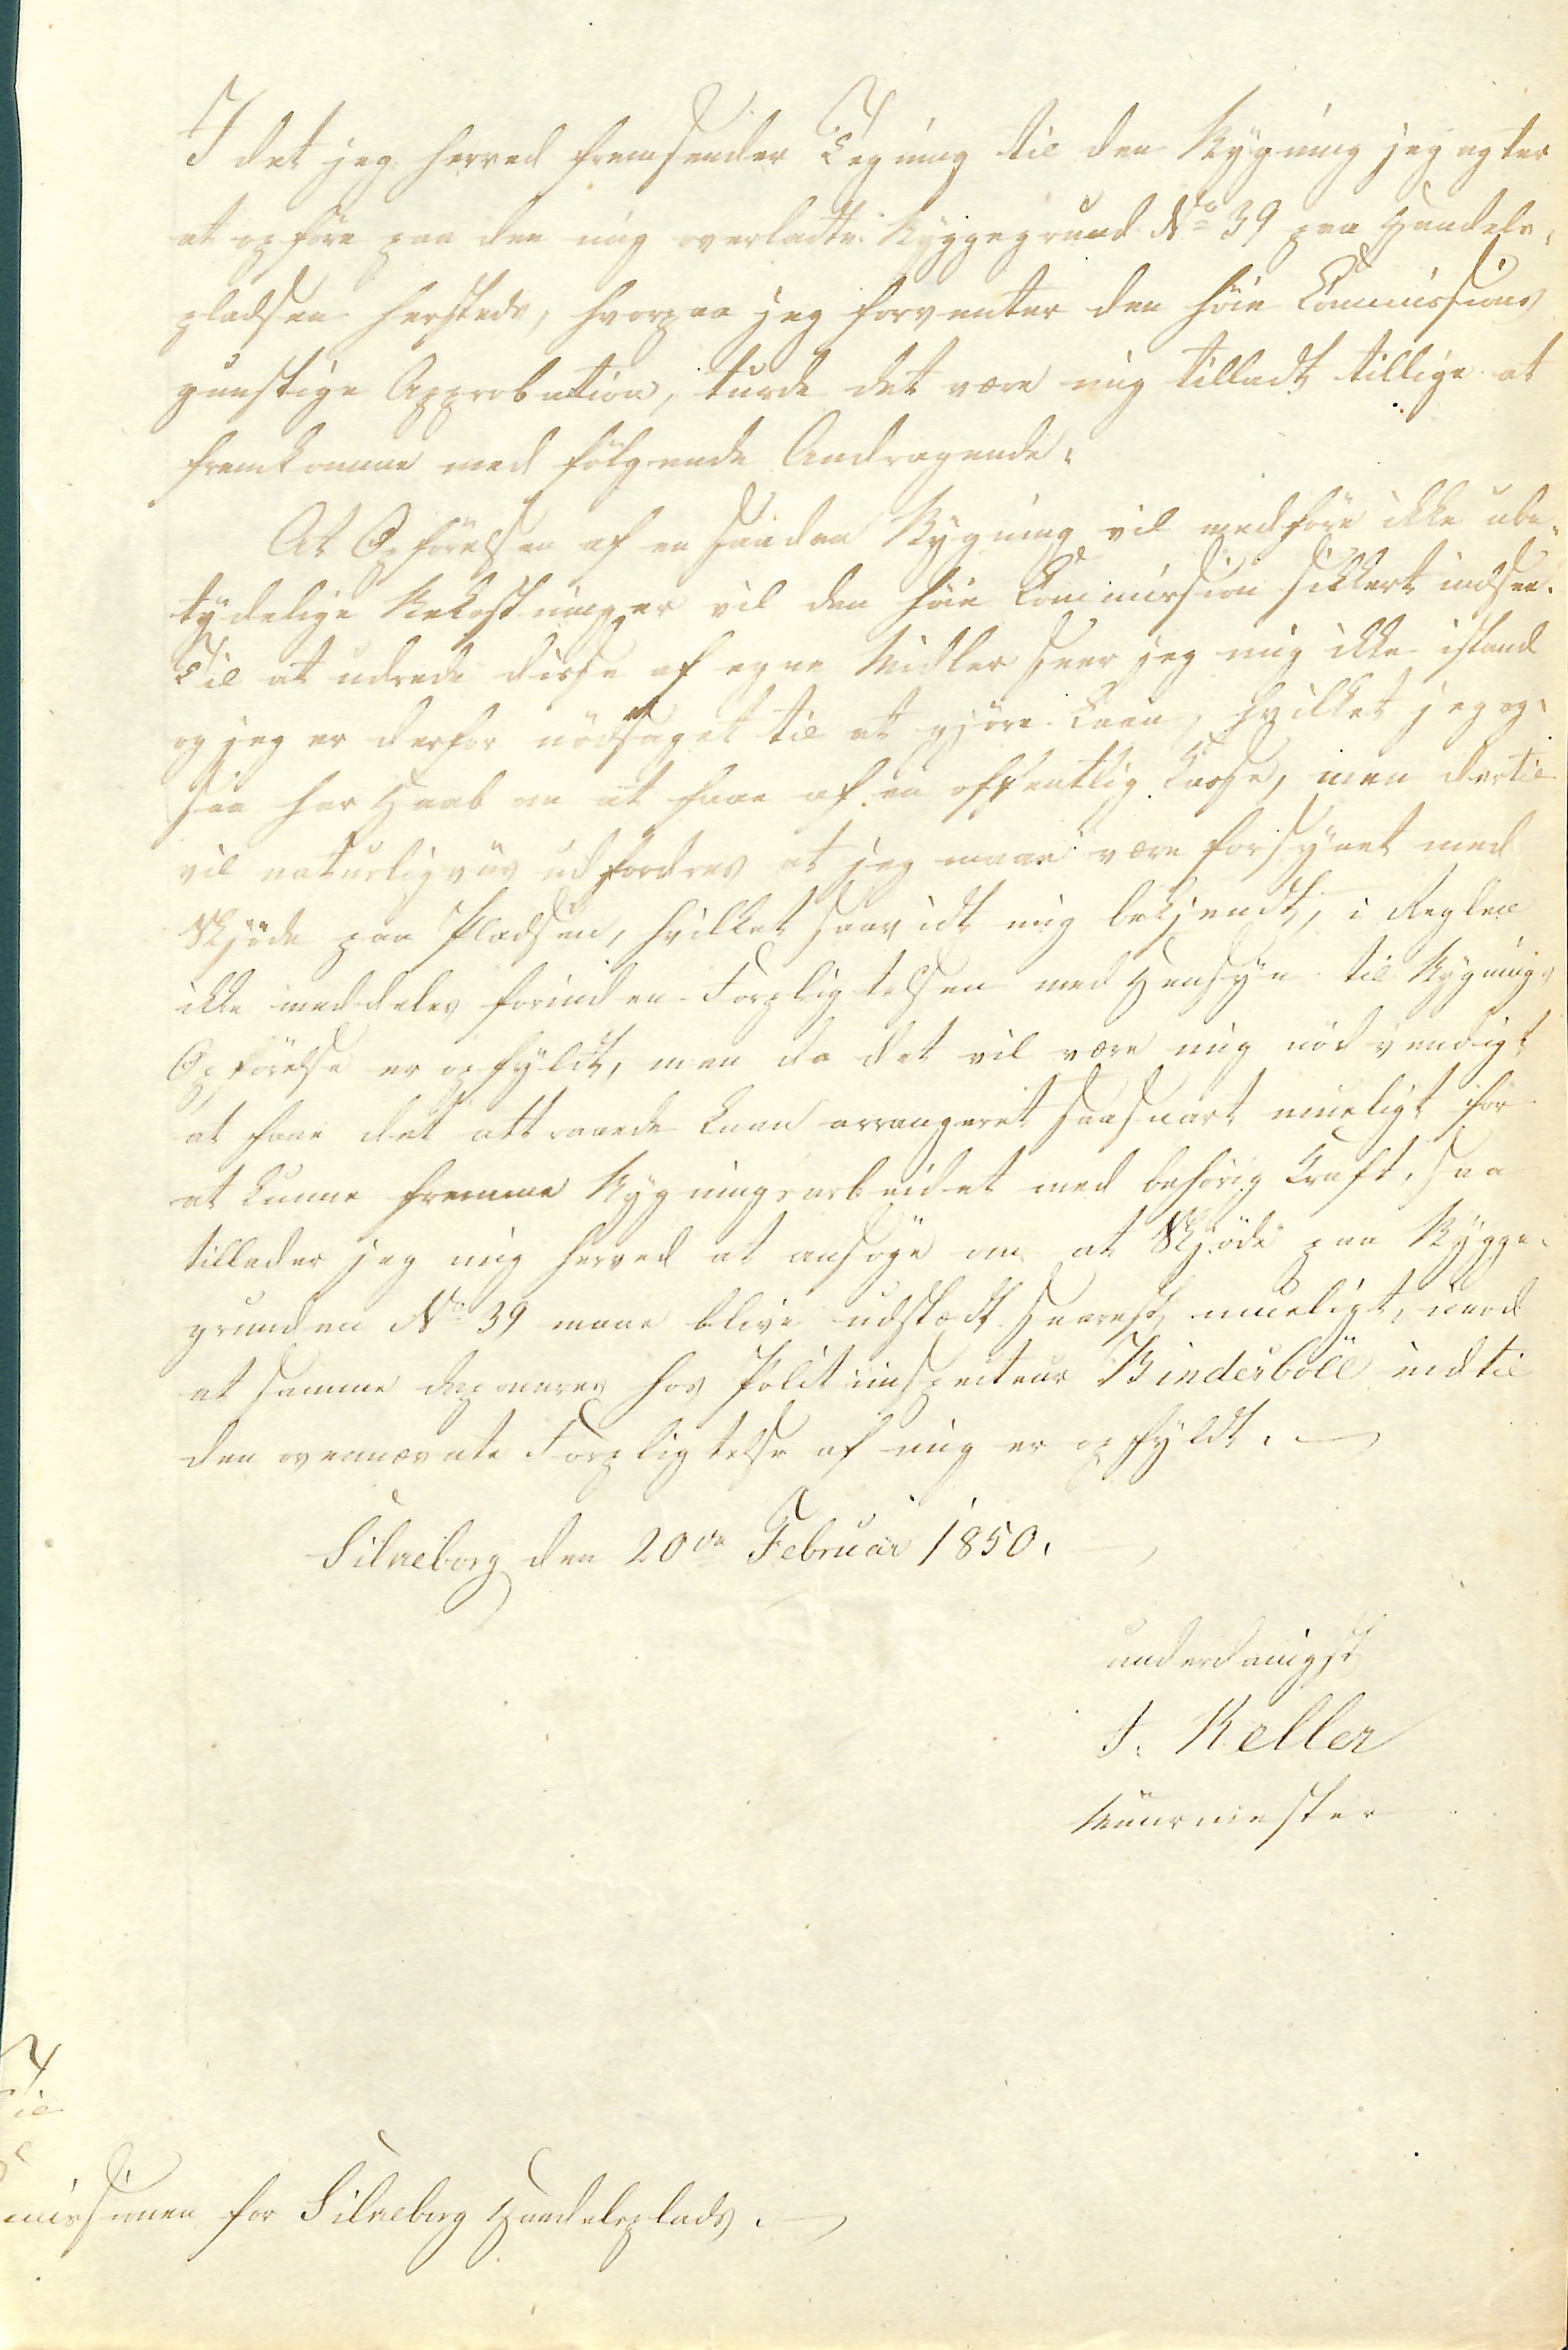 I det jeg herved fremsender Tegning til den Bygning jeg agter
at opföre paa den mig overladte Byggegrund No 39 paa Handels-
pladsen hersteds, hvorpaa jeg forventer den höie Commissions
gunstige Approbation, turde det være mig tilladt tillige at
fremkomme med fölgende Andragende:
At Opförelsen af en saadan Bygning vil medföre ikke ube-
tydelige Bekostninger vil den höie Commission sikkert indsee.
Til at udrede disse af egne Midler seer jeg mig ikke istand
og jeg er derfor nödsaget til at gjöre Laan, hvilket jeg og-
saa har Haab om at faae af en offentlig Casse, men dertil
vil naturligviis udfordres at jeg maae være forsynet med
Skjöde paa Pladsen, hvilket saavidt mig bekjendt, i Reglen
ikke meddeles forinden Forpligtelsen med Hensyn til Bygnings
Opförelse er opfyldt, men da det vil være mig nödvendigt
at faae det attraaede Laan arrangeret saasnart mueligt for
at kunne fremme Bygningsarbeidet med behörig Kraft, saa
tillader jeg mig herved at ansöge om at Skjöde paa Bygge-
grunden No 39 maae blive udstædt snarest mueligt, imod
at samme deponeres hos Politiinspecteur Bindesböll indtil
den ovennævnte Forpligtelse af mig er opfyldt.
Silkeborg den 20de Februar 1850.
underdanigst
J. Keller
Muurmester
Til
missionen for Silkeborg Handelsplads.